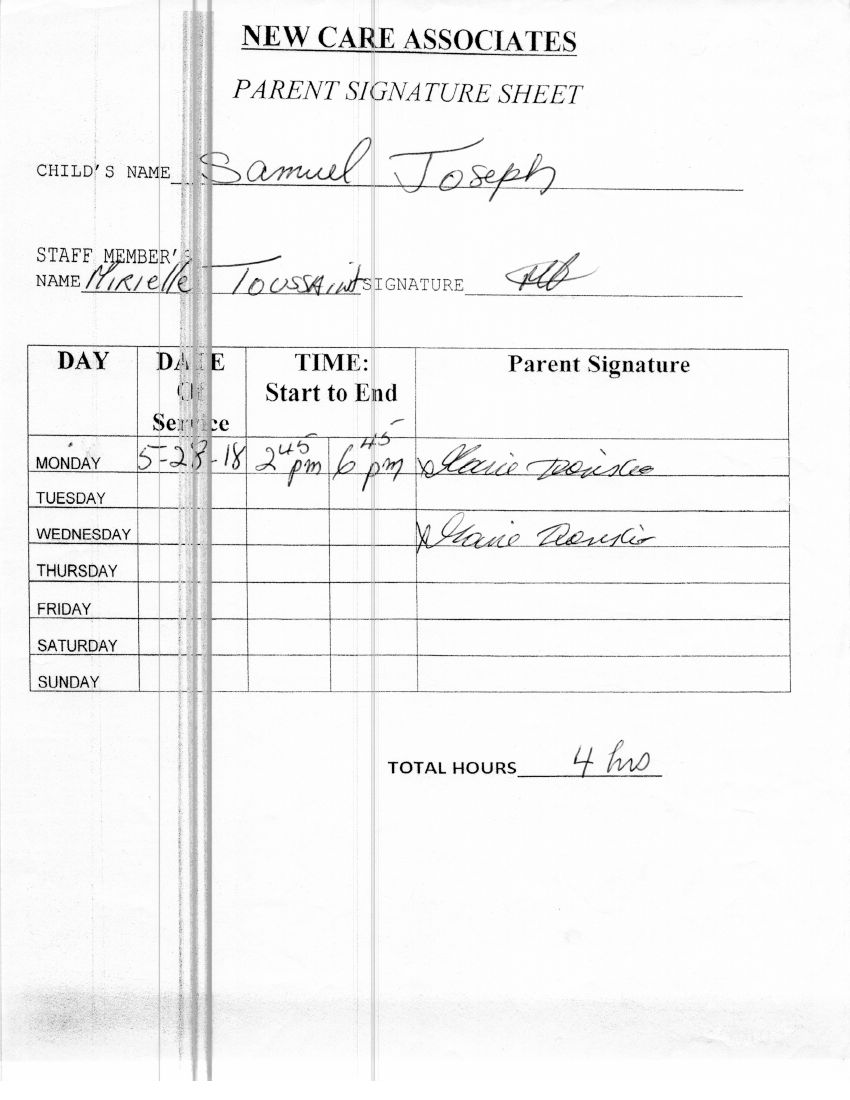 NEW CARE ASSOCIATES
PARENT SIGNATURE SHEET
CHILD'S NAME Samuel Joseph
STAFF MEMBER'S
NAME Mirielle Toussaint SIGNATURE
DAY DATE Of Service TIME: Start to End Parent Signature
MONDAY 5-28-18 2 45 pm 6 45 pm X Marie
TUESDAY
WEDNESDAY X Marie
THURSDAY
FRIDAY
SATURDAY
SUNDAY
TOTAL HOURS 4 hrs